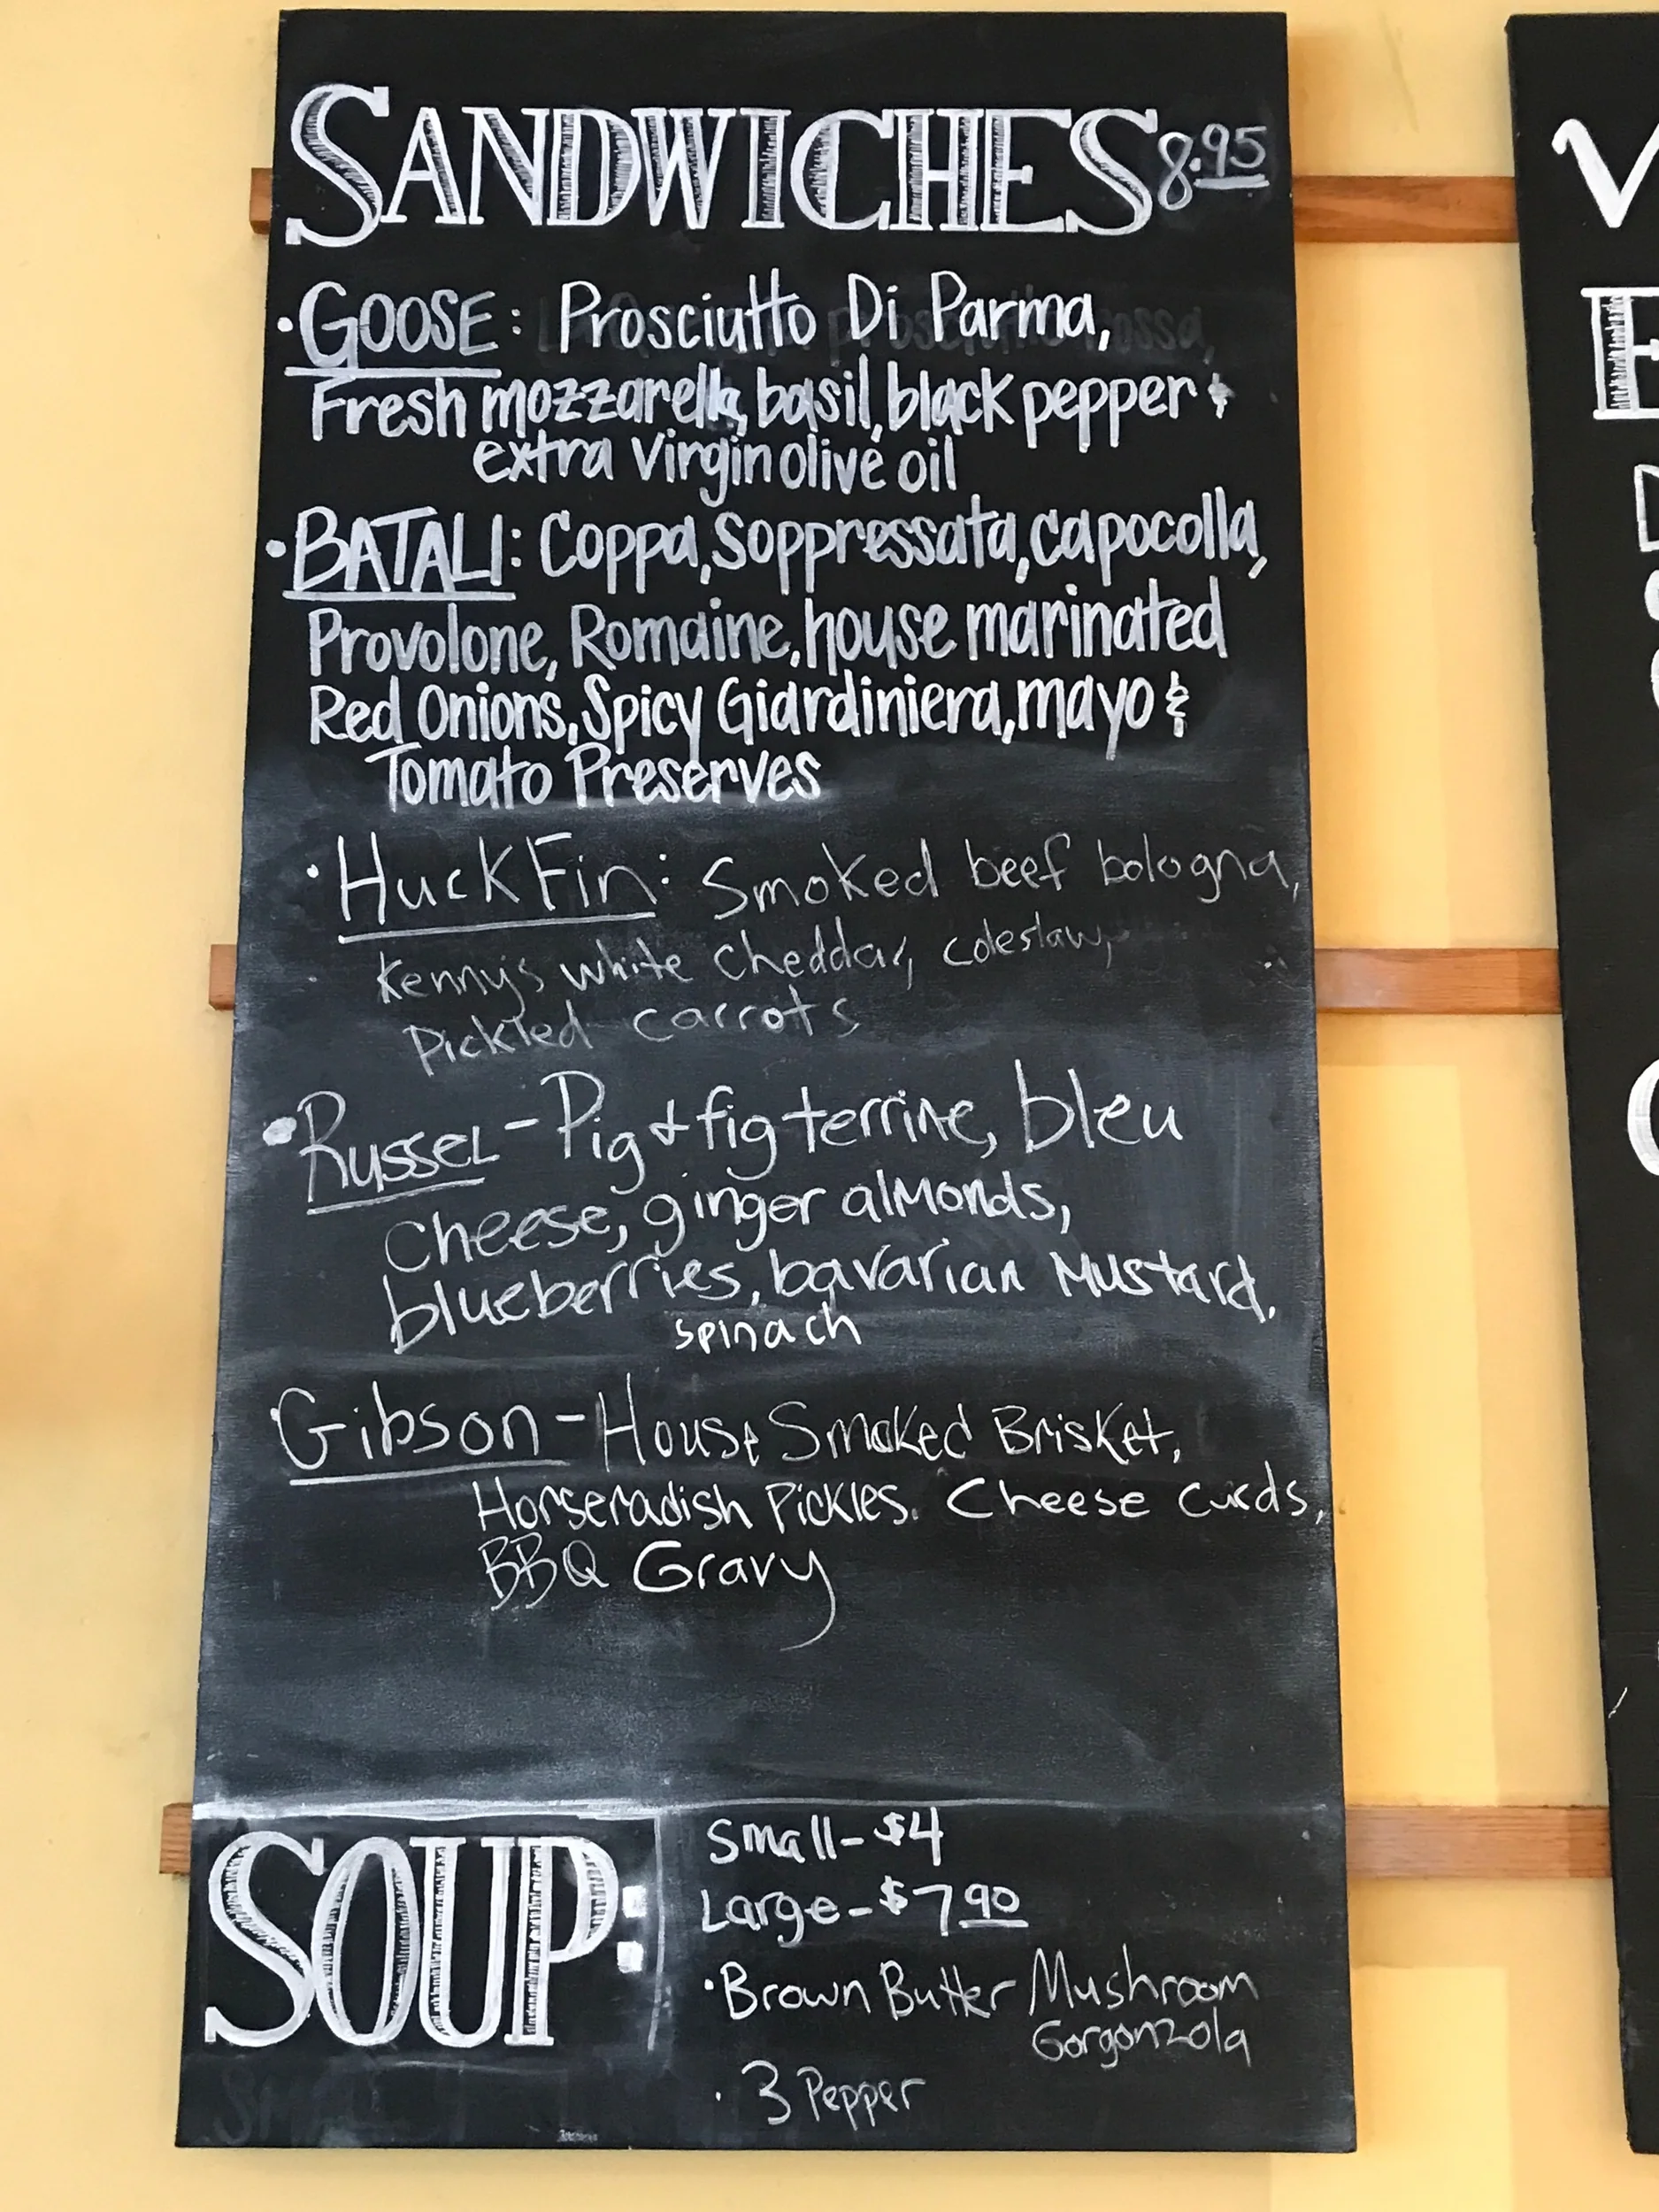 SANDWICHES 8.95
• GOOSE: Prosciutto Di Parma,
Fresh mozzarella, basil, black pepper &
extra virgin olive oil
• BATALI: Coppa, Soppressata, capocolla,
Provolone, Romaine, house marinated
Red Onions, Spicy Giardiniera, mayo &
Tomato Preserves
• Huck Fin: Smoked beef bologna,
Kenny's white cheddar, coleslaw,
Pickled carrots
• Russel - Pig & fig terrine, bleu
cheese, ginger almonds,
blueberries, bavarian Mustard,
spinach
• Gibson - House Smoked Brisket,
Horseradish Pickles. Cheese curds,
BBQ Gravy
SOUP:
Small - $4
Large - $7 90
• Brown Butter Mushroom
Gorgonzola
• 3 Pepper